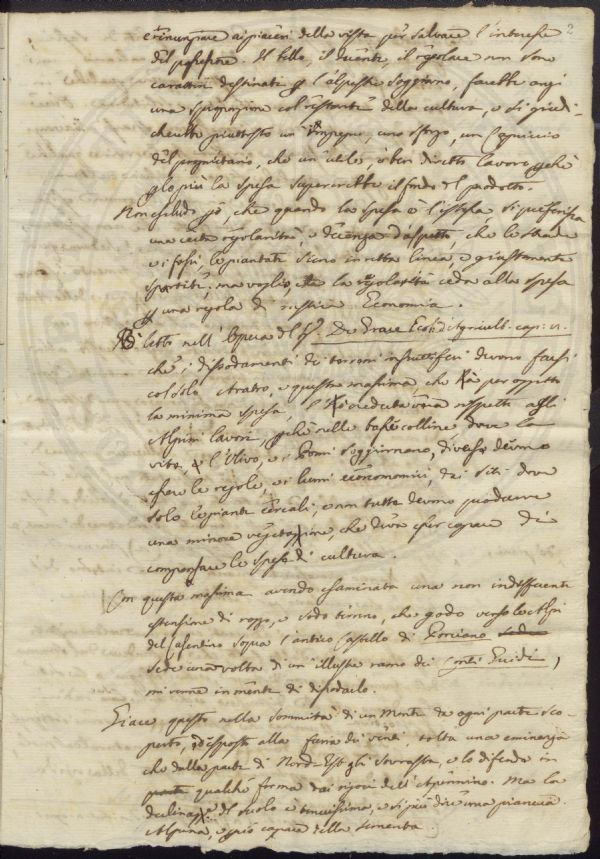 2
e rinunziare ai piaceri della vista per salvare l'interesse
del possessore. Il bello, il decente, il regolare non sono
caratteri destinati p l'alpestre soggiorno, sarebbe anzi
una sproporzione col restante della cultura, e si giudi-
cherebbe piuttosto un impegno, uno sforzo, un Capriccio
del proprietario, che un utile, o ben diretto lavoro pche
plo più la spesa supererebbe il fondo del prodotto.
Non escludo pò, che quando la spesa è l'istessa, si preferisca
una certa regolarità, e decenza d'aspetto, che le strade
e i fossi, le piantate sieno in retta linea, e giustamente
spartite; ma voglio, che la regolarità ceda alla spesa
p una regola di Economia.
Ho letto nell'Opera del De Grave Agricult. cap. VI.
che i dissodamenti di terreni infruttiferi devono farsi
col solo Aratro, e questa massima che ha per oggetto
la minima spesa, l'ho creduta vera rispetto agli
Alpini lavori, pchè nelle basse colline dove la
vite, e l'Ulivo, e i Pomi soggiornano, diverse devono
essere le regole, e i lumi economici, dai siti dove
solo le piante cereali, e non tutte devono produrre
una minore vegetazione, che deva esser capace di
compensare le spese di cultura.
Con questa massima avendo esaminata una non indifferente
estensione di rozzo, e sodo terreno, che godo verso le Alpi
del Casentino sopra l'antico Castello di Porciano
Sede una volta di un'illustre ramo dei Conti Guidi,
mi venne in mente di dissodarlo.
Giace questo nella sommità di un Monte da ogni parte sco-
perto, ed esposto alla furia dei venti, tolta una eminenza
che dalla parte di Nord-Est gli sovrasta, e lo difende in
qualche forma dai rigori dell'Apennino. Ma la
declinazione del suolo è tenuissima, e si può dire una pianura
Alpina, e più capace della sementa.